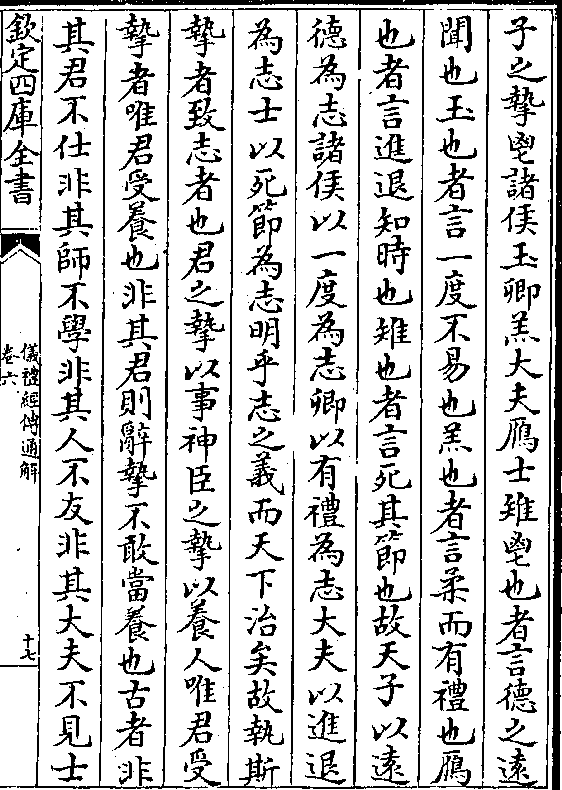 子之摯鬯諸侯玉卿羔大夫鴈士雉鬯也者言德之遠
聞也玉也者言一度不易也羔也者言柔而有禮也鴈
也者言進退知時也雉也者言死其節也故天子以遠
德為志諸侯以一度為志卿以有禮為志大夫以進退
為志士以死節為志明乎志之義而天下治矣故執斯
摯者致志者也君之摯以事神臣之摯以養人唯君受
摯者唯君受養也非其君則辭摯不敢當養也古者非
其君不仕非其師不學非其人不友非其大夫不見士
欽定四庫全書
儀禮經傳通解
卷六
十七